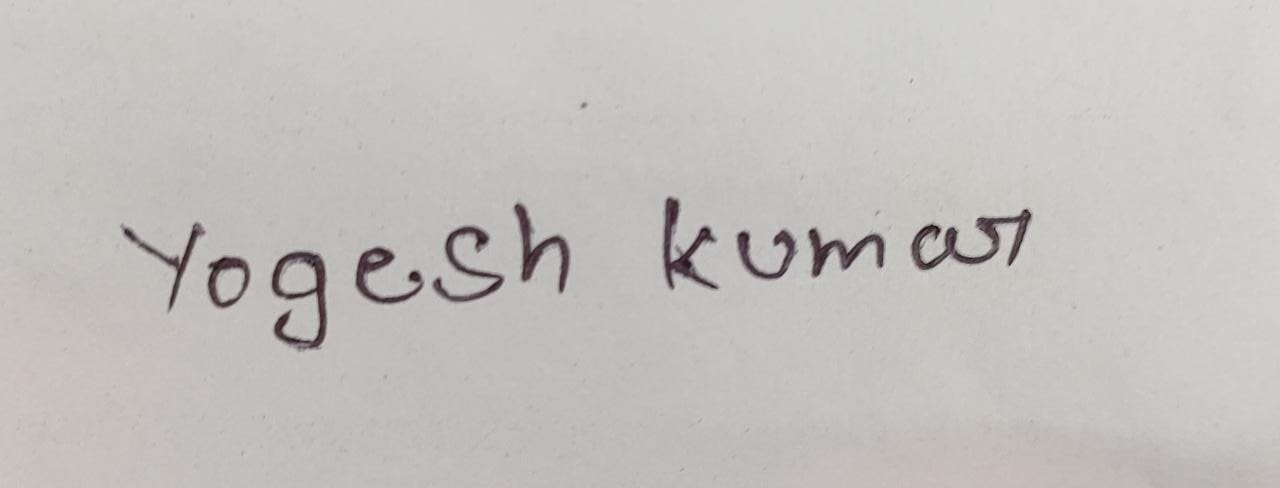 Yogesh kumar